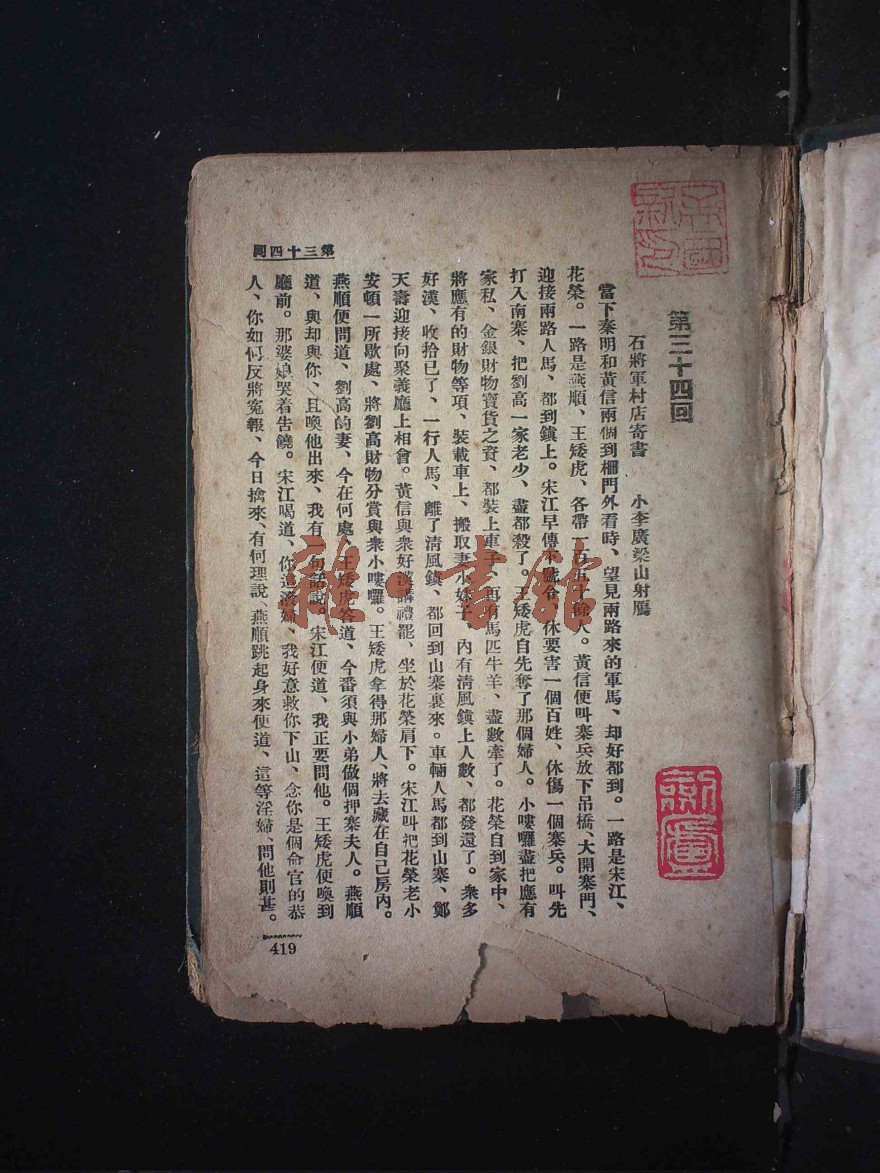 第三十四回
石將軍村店寄書　小李廣梁山射鴈
當下秦明和黃信兩個到柵門外看時、望見兩路來的軍馬、却好都到。一路是宋江、
花榮。一路是燕順、王矮虎、各帶一百五十餘人。黃信便叫寨兵放下吊橋、大開寨門、
迎接兩路人馬、都到鎭上。宋江早傳下號令、休要害一個百姓、休傷一個寨兵。叫先
打入南寨、把劉高一家老少、盡都殺了。王矮虎自先奪了那個婦人。小嘍囉盡把應有
家私、金銀財物寶貨之資、都裝上車子、再有馬匹牛羊、盡數牽了。花榮自到家中、
將應有的財物等項、裝載車上、搬取妻小妹子、內有淸風鎭上人數、都發還了。衆多
好漢、收拾已了、一行人馬、離了淸風鎭、都回到山寨裏來。車輛人馬都到山寨、鄭
天壽迎接向聚義廳上相會。黃信與衆好漢講禮罷、坐於花榮肩下。宋江叫把花榮老小
安頓一所歇處、將劉高財物分賞與衆小嘍囉。王矮虎拿得那婦人、將去藏在自己房內。
燕順便問道、劉高的妻、今在何處、王矮虎答道、今番須與小弟做個押寨夫人。燕順
道、與却與你、且喚他出來、我有一句話說。宋江便道、我正要問他。王矮虎便喚到
廳前。那婆娘哭着告饒。宋江喝道、你這潑婦、我好意救你下山、念你是個命官的恭
人、你如何反將寃報、今日擒來、有何理說、燕順跳起身來便道、這等淫婦、問他則甚。
第三十四回
419
雜·書館